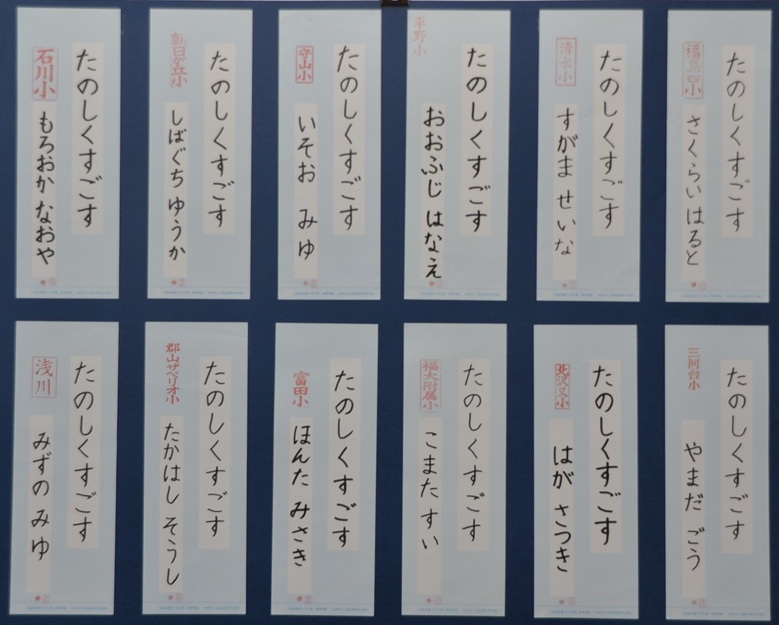 たのしくすごす
福島四小
さくらい はると
たのしくすごす
清水小
すがま せいな
たのしくすごす
平野小
おおふじ はなえ
たのしくすごす
守山小
いそお みゆ
たのしくすごす
朝日が丘小
しばぐち ゆうか
たのしくすごす
石川小
もろおか なおや
たのしくすごす
三河台小
やまだ ごう
たのしくすごす
北沢又小
はが さつき
たのしくすごす
福大附属小
こまた すい
たのしくすごす
富田小
ほんた みさき
たのしくすごす
郡山ザベリオ小
たかはし そうし
たのしくすごす
浅川
みずの みゆ